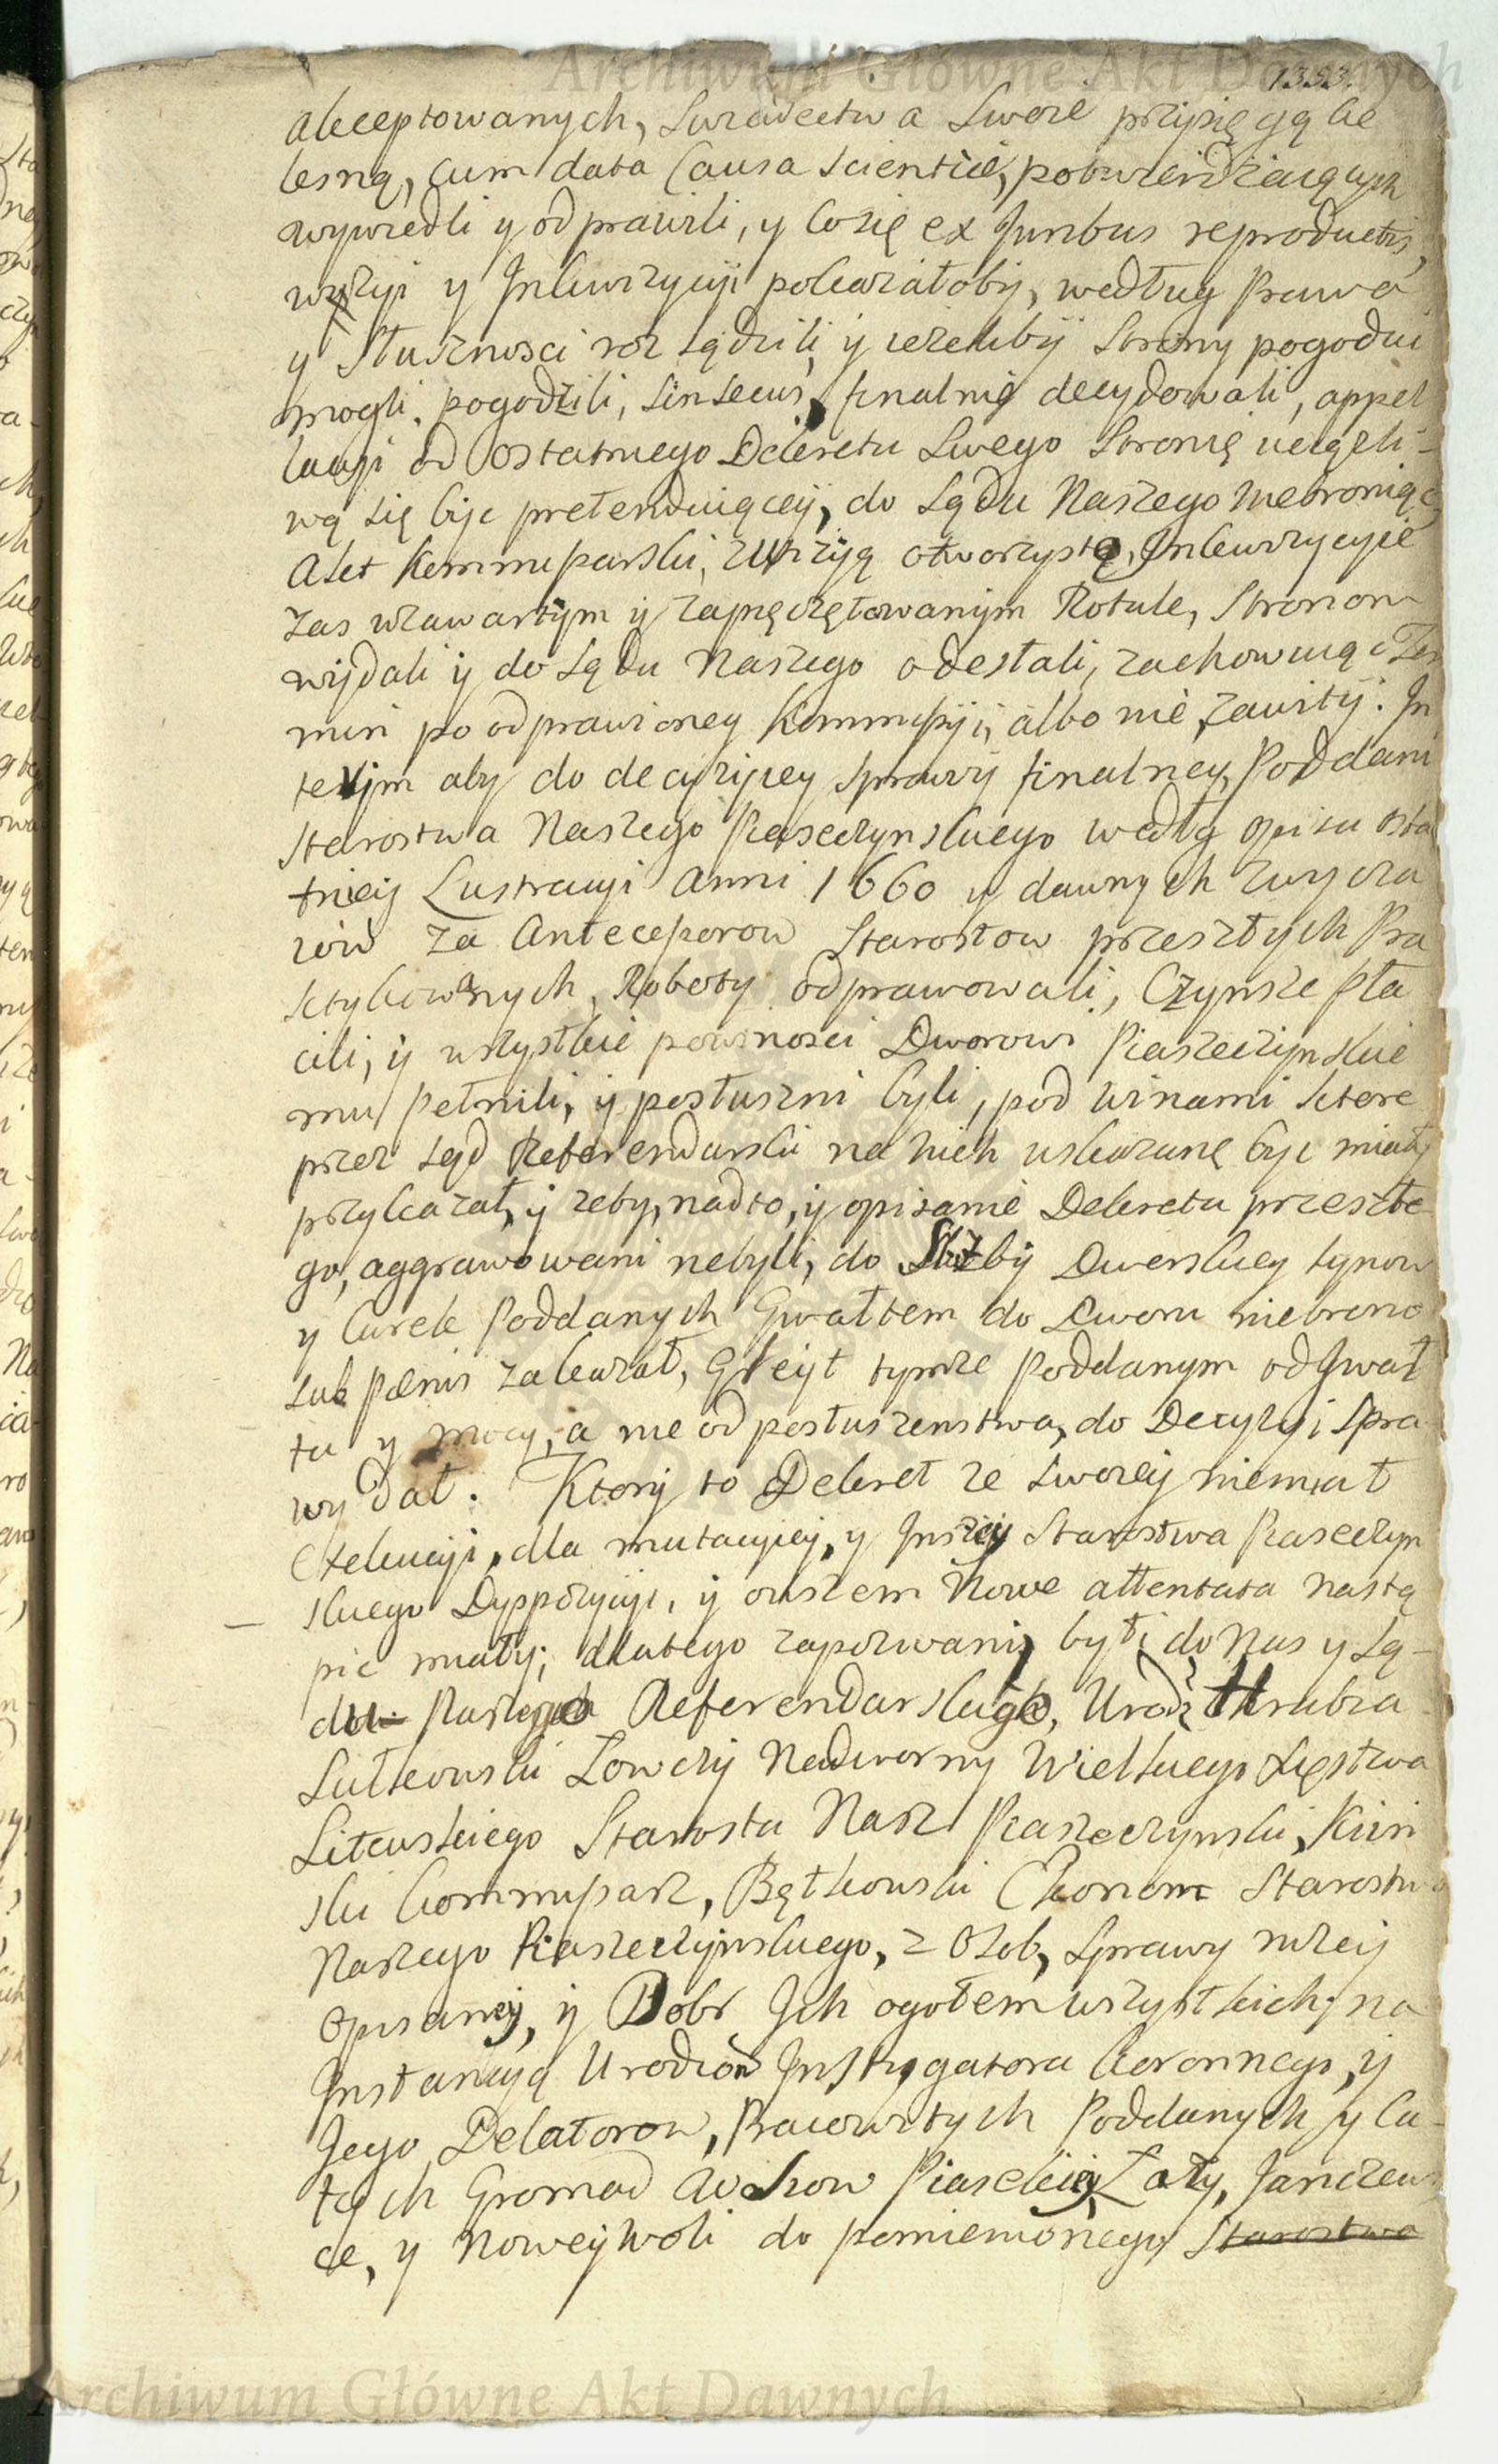 1393.
akceptowanych, Swiadectwa Swoie przysięgą Cie
lesną, cum data Causa Scientiæ, potwierdzaiących
wywiedli y odprawili, y co się ex Juribus reproductis,
wizyi y Inkwizycyi pokazałoby, według Prawa
y Słusznosci rozsądzili, y ieżeliby Strony pogodzić
mogli, pogodzili, sin secus, finalnie decydowali, appel
lacyi od ostatniego Dekretu Swego Stronię uciążli-
wą się byc pretenduiącey, do Sądu Naszego niebroniąc,
Aktet Kommissarski, z wizyą otworzystą, Inkwizycyie
zas w zawartym y zapięczętowanym Rotule, Stronom
wydali y do Sądu Naszego odesłali, zachowuiąc Ter
min po odprawioney Kommissyi, albo nie, zawity. In
terim aby do decyzyiey sprawy finalney, Poddani
Starostwa Naszego Piaseczynskiego wedłg opisu osta
tniey Lustracyi Anni 1660 y dawnych zwycza
iów za Antecessorow Starostow przeszłych Pra
ktykowanych, Roboty odprawowali, Czynsze pła
cili, y wszystkie powinosci Dworowi Piaszeczynskie
mu pełnili, y posłuszni byli, pod winami ktore
przez Sąd Referendarski na nich uskazane byc miały
przykazał, y żeby, nadto, y opisanie Dekretu przeszłe-
go, aggrawowani nebyli, do Służby Dworskiey synow
y Curek Poddanych Gwałtem do Dworu niebrano
sub pœnis zakazał, Gleyt tymze Poddanym od gwał
tu y mocy, a nie od posłuszenstwa, do Decyzyi Spra
wy dał. Ktory to Dekret ze swoiey niemiał
Exekucyi, dla mutacyiey, y Jnszey Starostwa Piaseczyn
skiego Dyspozycyi, y owszem Nowe attentata nastą
pic miały; dlatego zapozwani, byli do Nas y Są-
du Naszego Referendarskiego, Urodz Hrabia
Sułkowski Łowczy Nadworny Wielkiego Xięstwa
Litewskiego Starosta Nasz Piaszeczynski, Kiin
ski Kommissarz, Bętkowski Ekonom Starostwa
Naszego Piaszeczynskiego, z Osob, Sprawy niżey
opisaney, y Dobr Jch ogołem wszystkich, na
Jnstancyą Urodzon Jnstygatora Koronnego, y
Jego Delatorow, Pracowitych Poddanych y Ca-
łych Gromad Wskow Piaseckiey, Łazy, Janczew
ce, y Noweywoli do pomienionego Starostwa